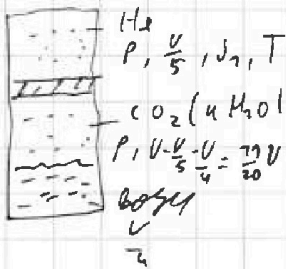 He
P, V/5, ν₁, T
CO₂ (и H₂O)
P, V - V/5 - V/4 = 11/20 V
воды
V/4